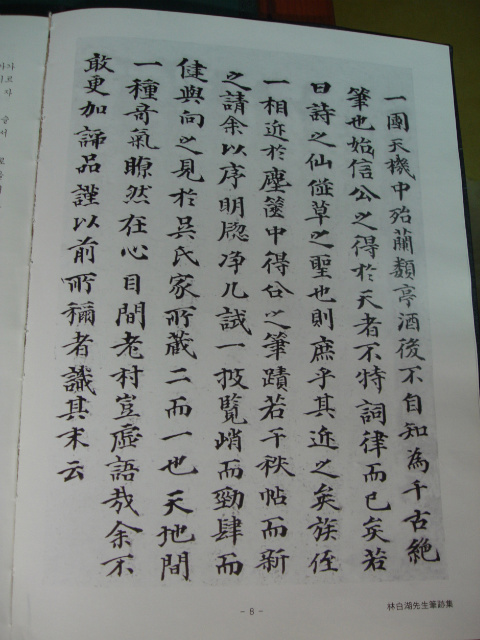 一團天機中殆蘭亭酒後不自知為千古絶
筆也始信公之得於天者不特詞律而已矣若
曰詩之仙從草之聖也則庶乎其近之矣族侄
一相近於塵篋中得公之筆蹟若干秩帖而新
之請余以序明窓净几試一披覽峭而勁肆而
健與向之見於吳氏家所藏二而一也天地間
一種奇氣瞭然在心目間老村豈虛語哉余不
敢更加諦品謹以前所稱者識其末云
- 8 -
林白湖先生筆跡集